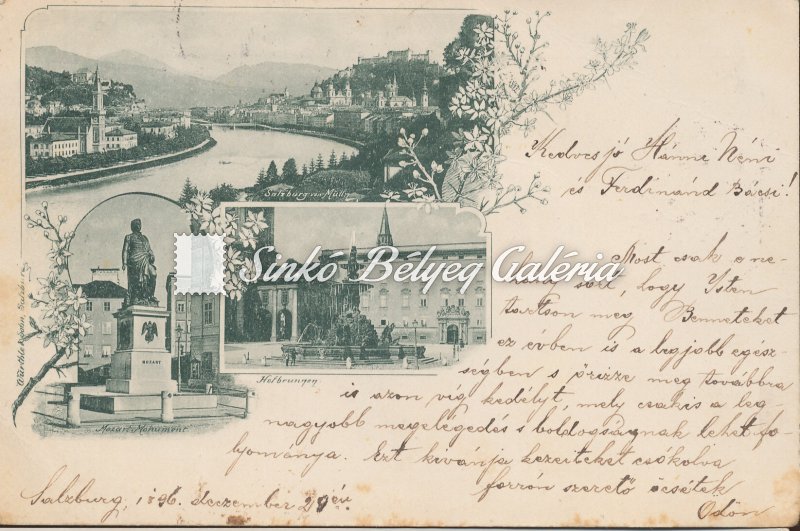 Salzburg von Mülln
Würthle & Sohn, Salzburg
MOZART
Mozart-Monument
Hofbrunnen
Sinkó Bélyeg Galéria
Kedves jó Hánni Néni
és Ferdinánd Bácsi!
Most csak e ne-
hány sort, hogy Isten
tartson meg Benneteket
ez évben is a legjobb egész-
ségben s őrizze meg továbbra
is azon víg kedélyt, mely csakis a leg-
nagyobb megelégedés s boldogságnak lehet fo-
lyománya. Ezt kivánja kezeiteket csókolva
forrón szerető öcsétek
Ödön
Salzburg, 1896. deczember 29 én